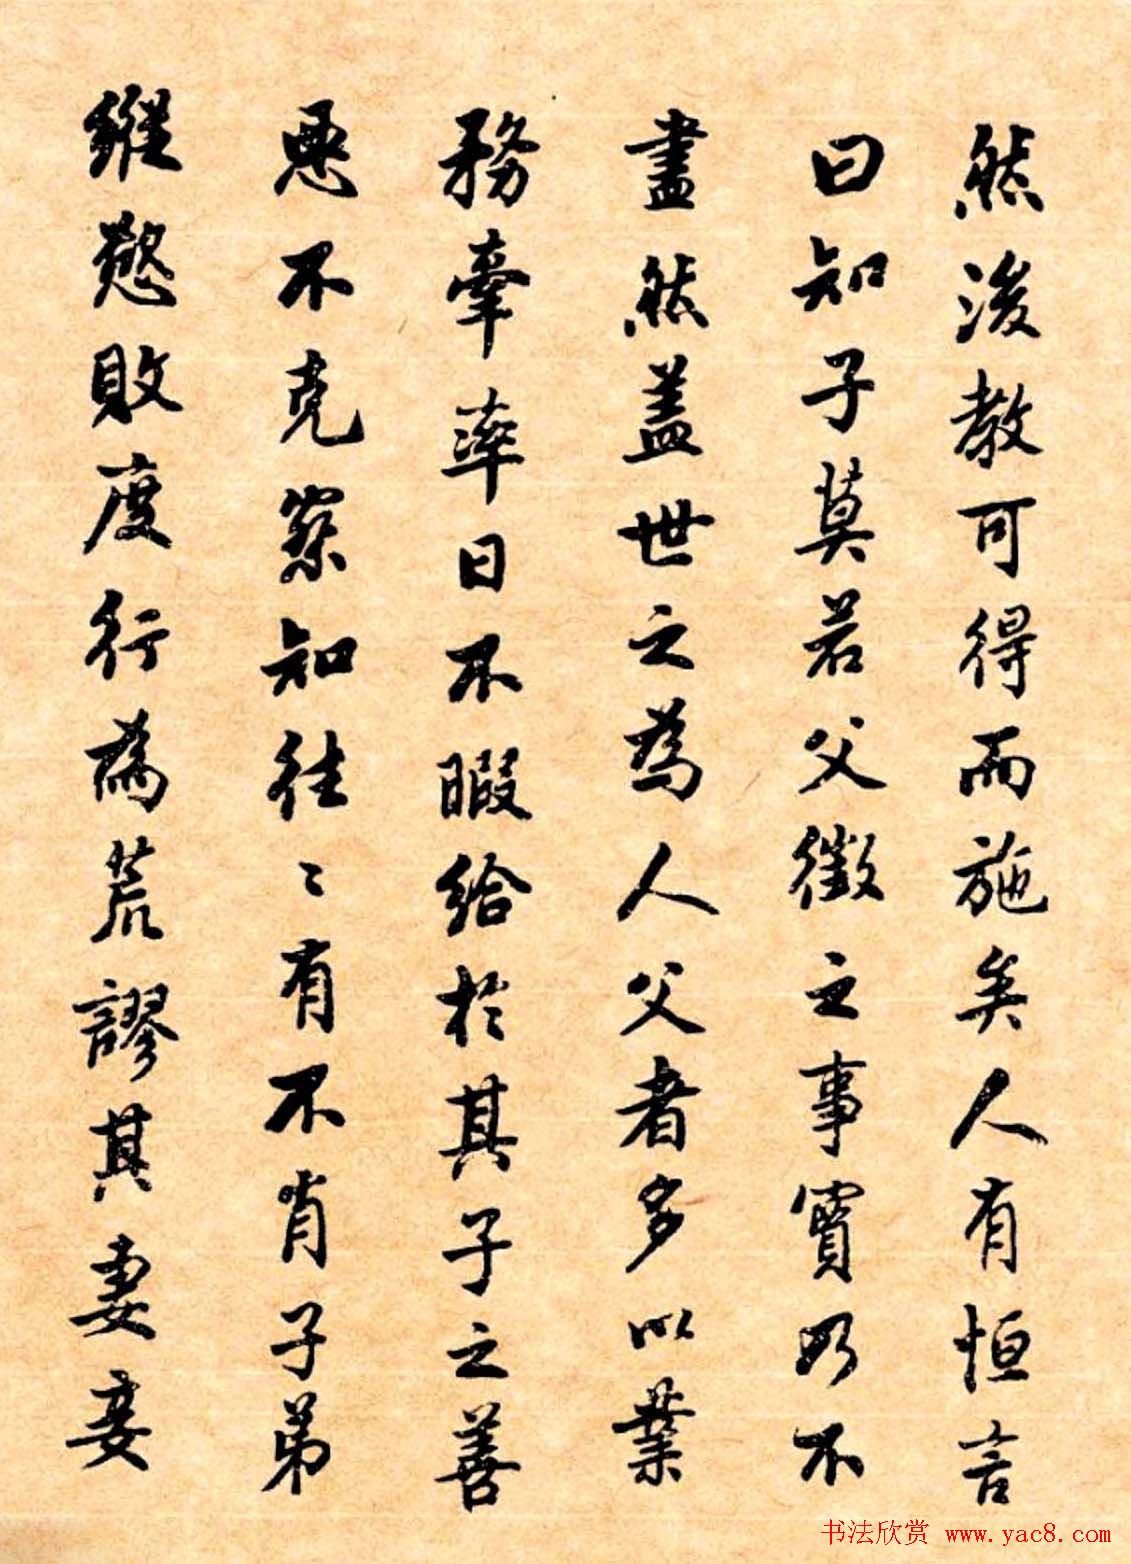 然後教可得而施矣人有恒言
曰知子莫若父徵之事實殆不
盡然蓋世之為人父者多以業
務牽率日不暇給於其子之善
惡不克察知往〻有不肖子弟
縱慾敗度行為荒謬其妻妾
书法欣赏 www.yac8.com